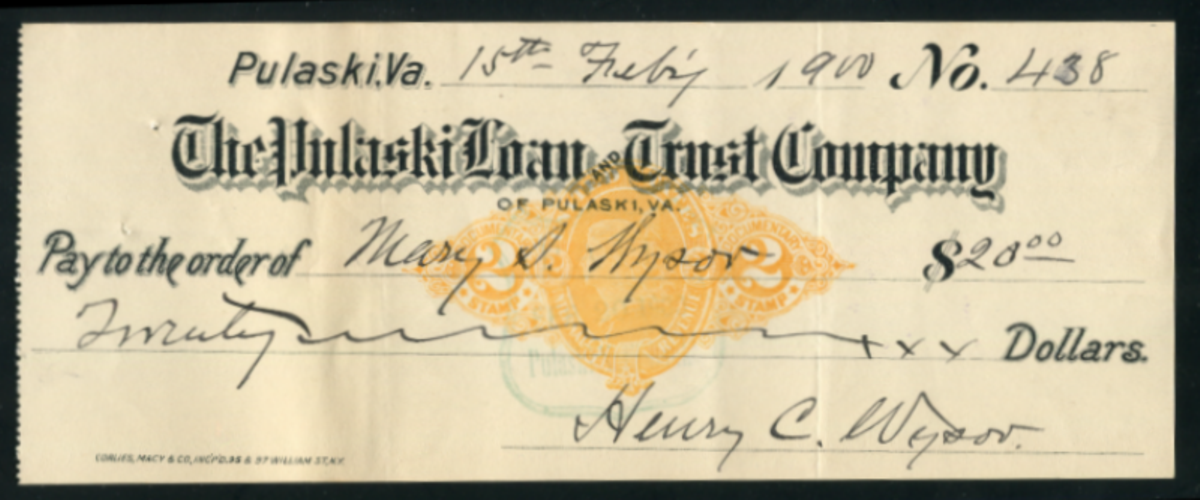 Pulaski, Va. 15th Feb'y 1900 No. 438
The Pulaski Loan AND Trust Company
OF PULASKI, VA.
Pay to the order of Mary S. Wysor $20 00
DOCUMENTARY 2 STAMP 2 STAMP
Twenty x x x Dollars.
Henry C. Wysor.
CORLIES, MACY & CO., INC'P'D. 95 & 97 WILLIAM ST., N.Y.